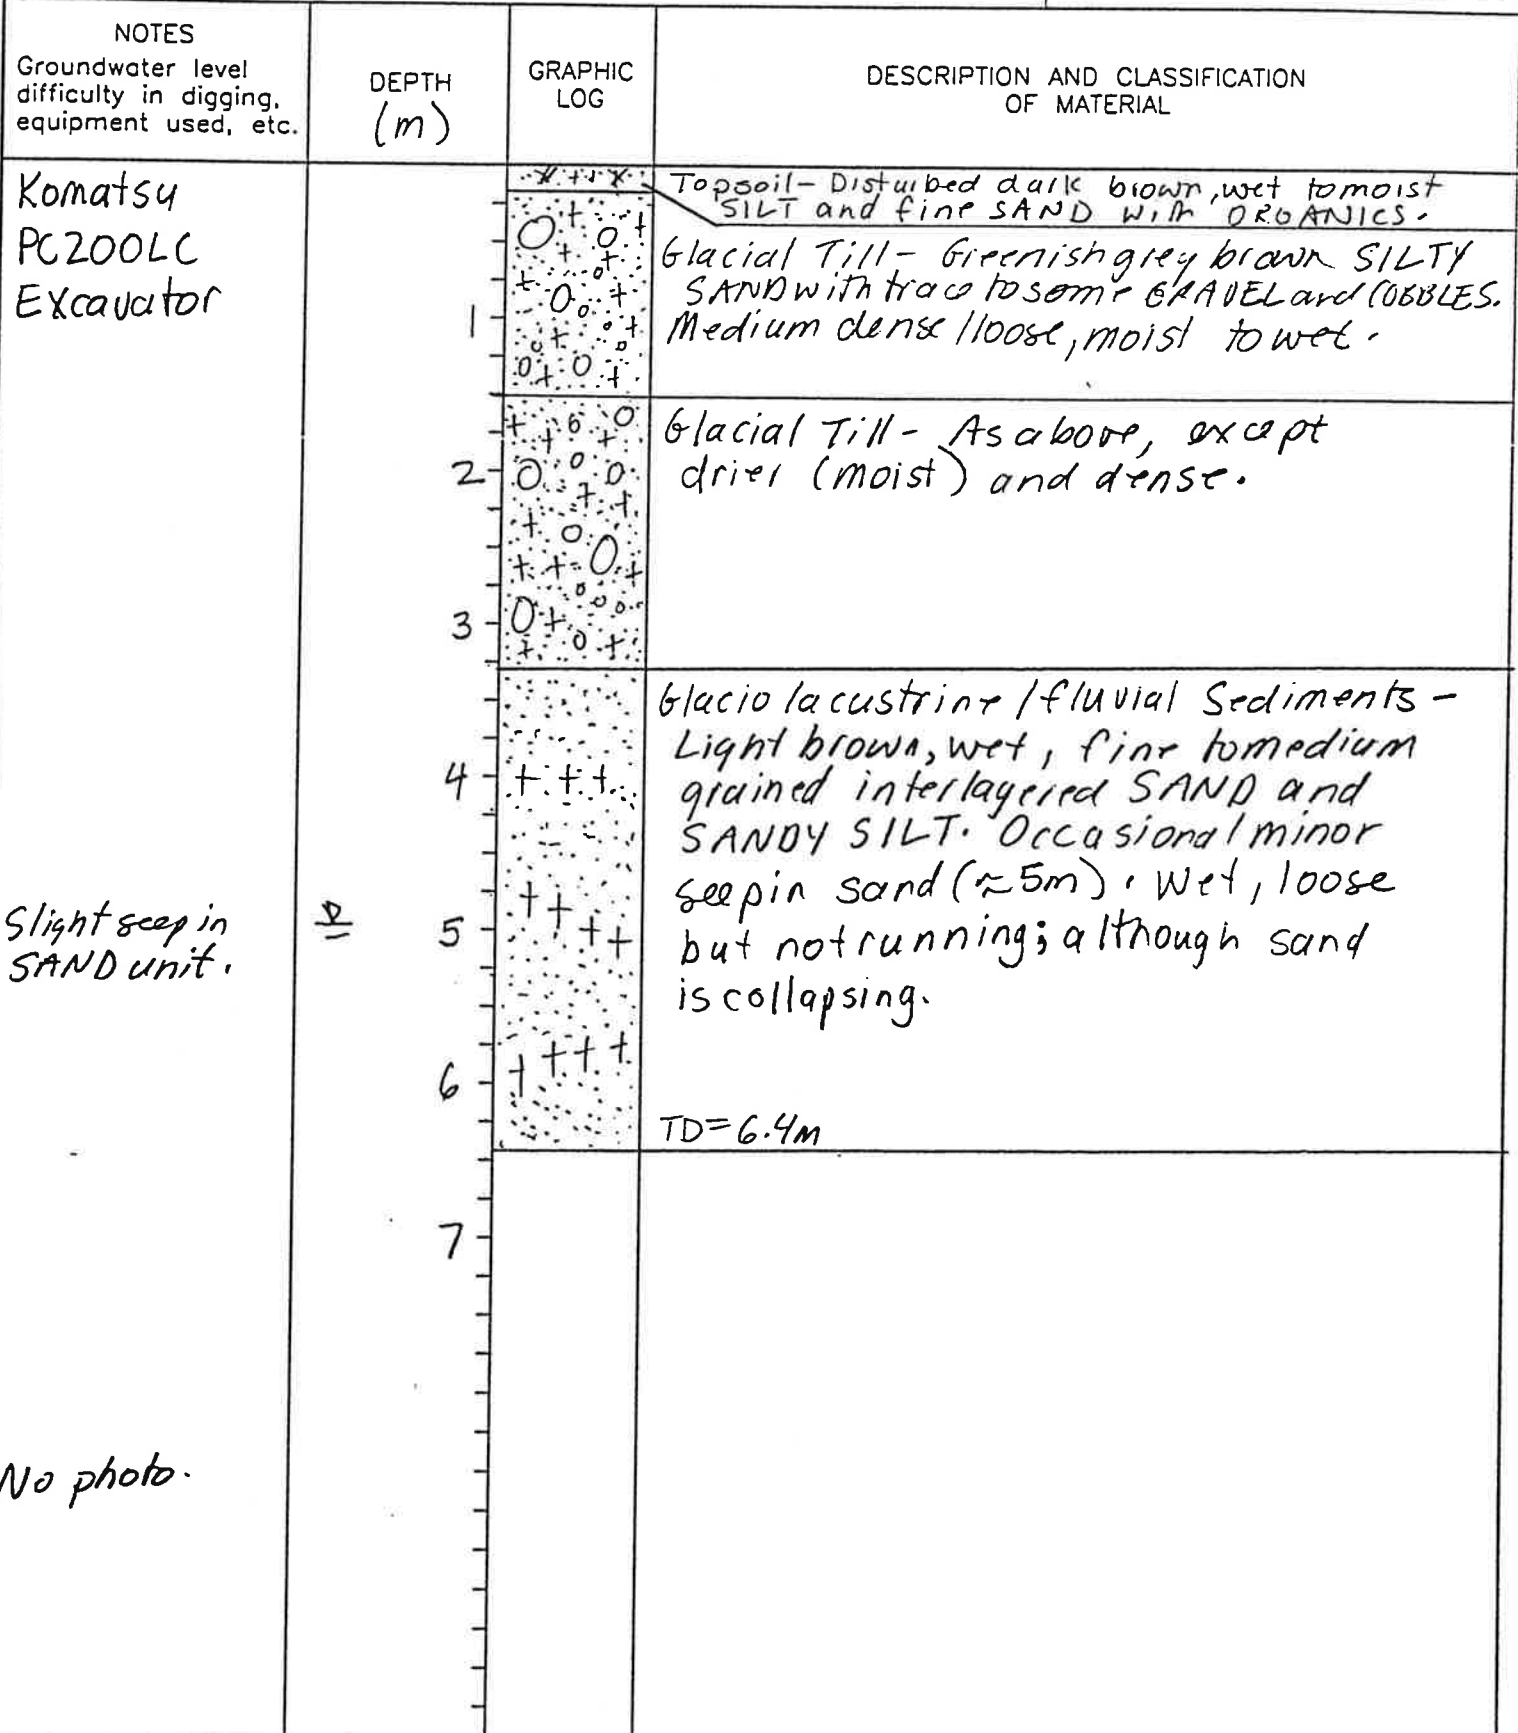 NOTES
Groundwater level
difficulty in digging,
equipment used, etc.
DEPTH
(m)
GRAPHIC
LOG
DESCRIPTION AND CLASSIFICATION
OF MATERIAL
Komatsu
PC200LC
Excavator
Topsoil - Disturbed dark brown, wet to moist
SILT and fine SAND with ORGANICS.
Glacial Till - Greenish grey brown SILTY
SAND with trace to some GRAVEL and COBBLES.
Medium dense / loose, moist to wet.
1
Glacial Till - As above, except
drier (moist) and dense.
2
3
Glacio lacustrine / fluvial Sediments -
Light brown, wet, fine to medium
grained interlayered SAND and
SANDY SILT. Occasional minor
seep in sand (≈5m). Wet, loose
but not running; although sand
is collapsing.
4
Slight seep in
SAND unit.
5
6
TD=6.4m
7
No photo.